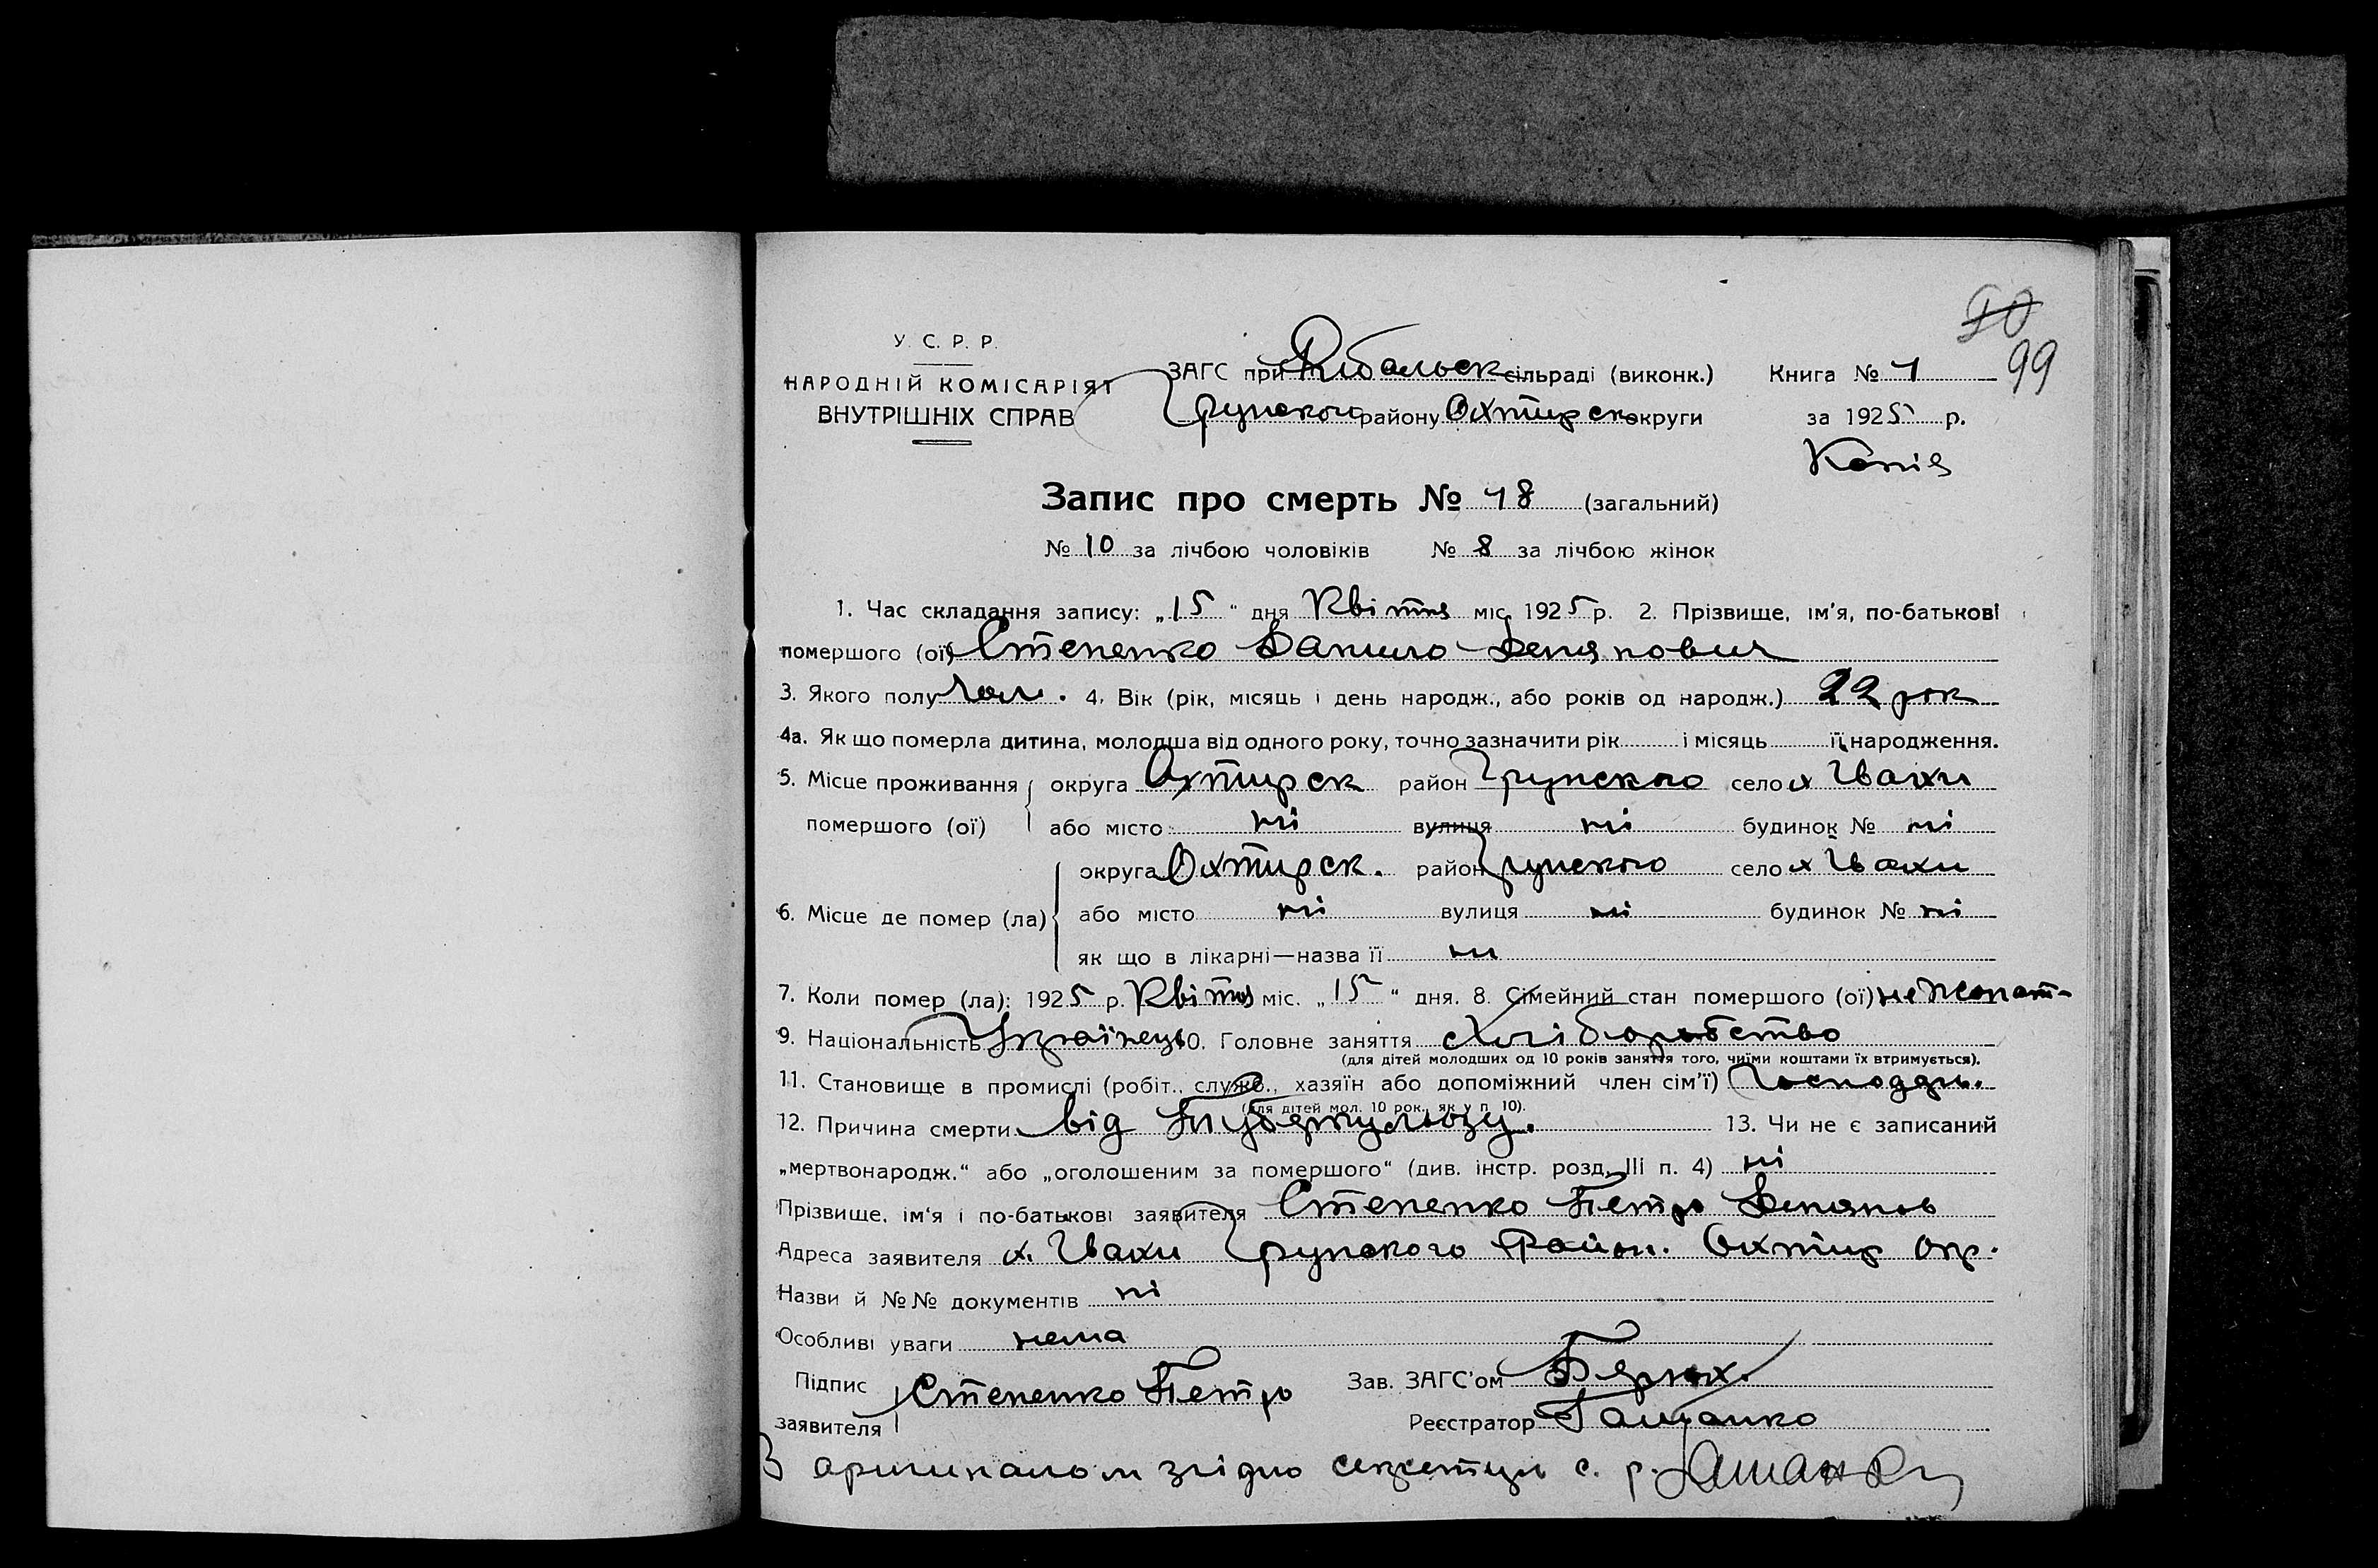 90
99
У. С. Р. Р.
НАРОДНІЙ КОМІСАРІЯТ
ВНУТРІШНІХ СПРАВ
ЗАГС при Рибальск сільраді (виконк.) Книга № 1
Грунского району Охтирск округи за 1925 р.
Копія
Запис про смерть № 18 (загальний)
№ 10 за лічбою чоловіків № 8 за лічбою жінок
1. Час складання запису: „15“ дня Квітня міс. 1925 р. 2. Прізвище, ім'я, по-батькові
помершого (ої) Степенко Данило Демянович
3. Якого полу чол. 4. Вік (рік, місяць і день народж., або років од народж.) 22 рок
4а. Як що померла дитина, молодша від одного року, точно зазначити рік і місяць її народження.
5. Місце проживання округа Охтирск район Грунского село х Івахи
помершого (ої) або місто ні вулиця ні будинок № ні
округа Охтирск. район Грунского село х Івахи
6. Місце де помер (ла) або місто ні вулиця ні будинок № ні
як що в лікарні—назва її ни
7. Коли помер (ла): 1925 р. Квітня міс. „15“ дня. 8. Сімейний стан помершого (ої) не жонат-
9. Національність Українець 10. Головне заняття хліборобство
(для дітей молодших од 10 років заняття того, чиїми коштами їх втримується).
11. Становище в промислі (робіт., служб., хазяїн або допоміжний член сім'ї)
(для дітей мол. 10 рок., як у п. 10).
12. Причина смерти від Тубяркульозу. 13. Чи не є записаний
„мертвонародж.“ або „оголошеним за помершого“ (див. інстр. розд. III п. 4) ні
Прізвище, ім'я і по-батькові заявителя Степенко Петро Демянов
Адреса заявителя х. Івахи Грунского Район. Охтир окр.
Назви й №№ документів ні
Особливі уваги нема
Підпис Степенко Петро Зав. ЗАГС'ом
заявителя Реєстратор
З аригиналом згідно с. р.